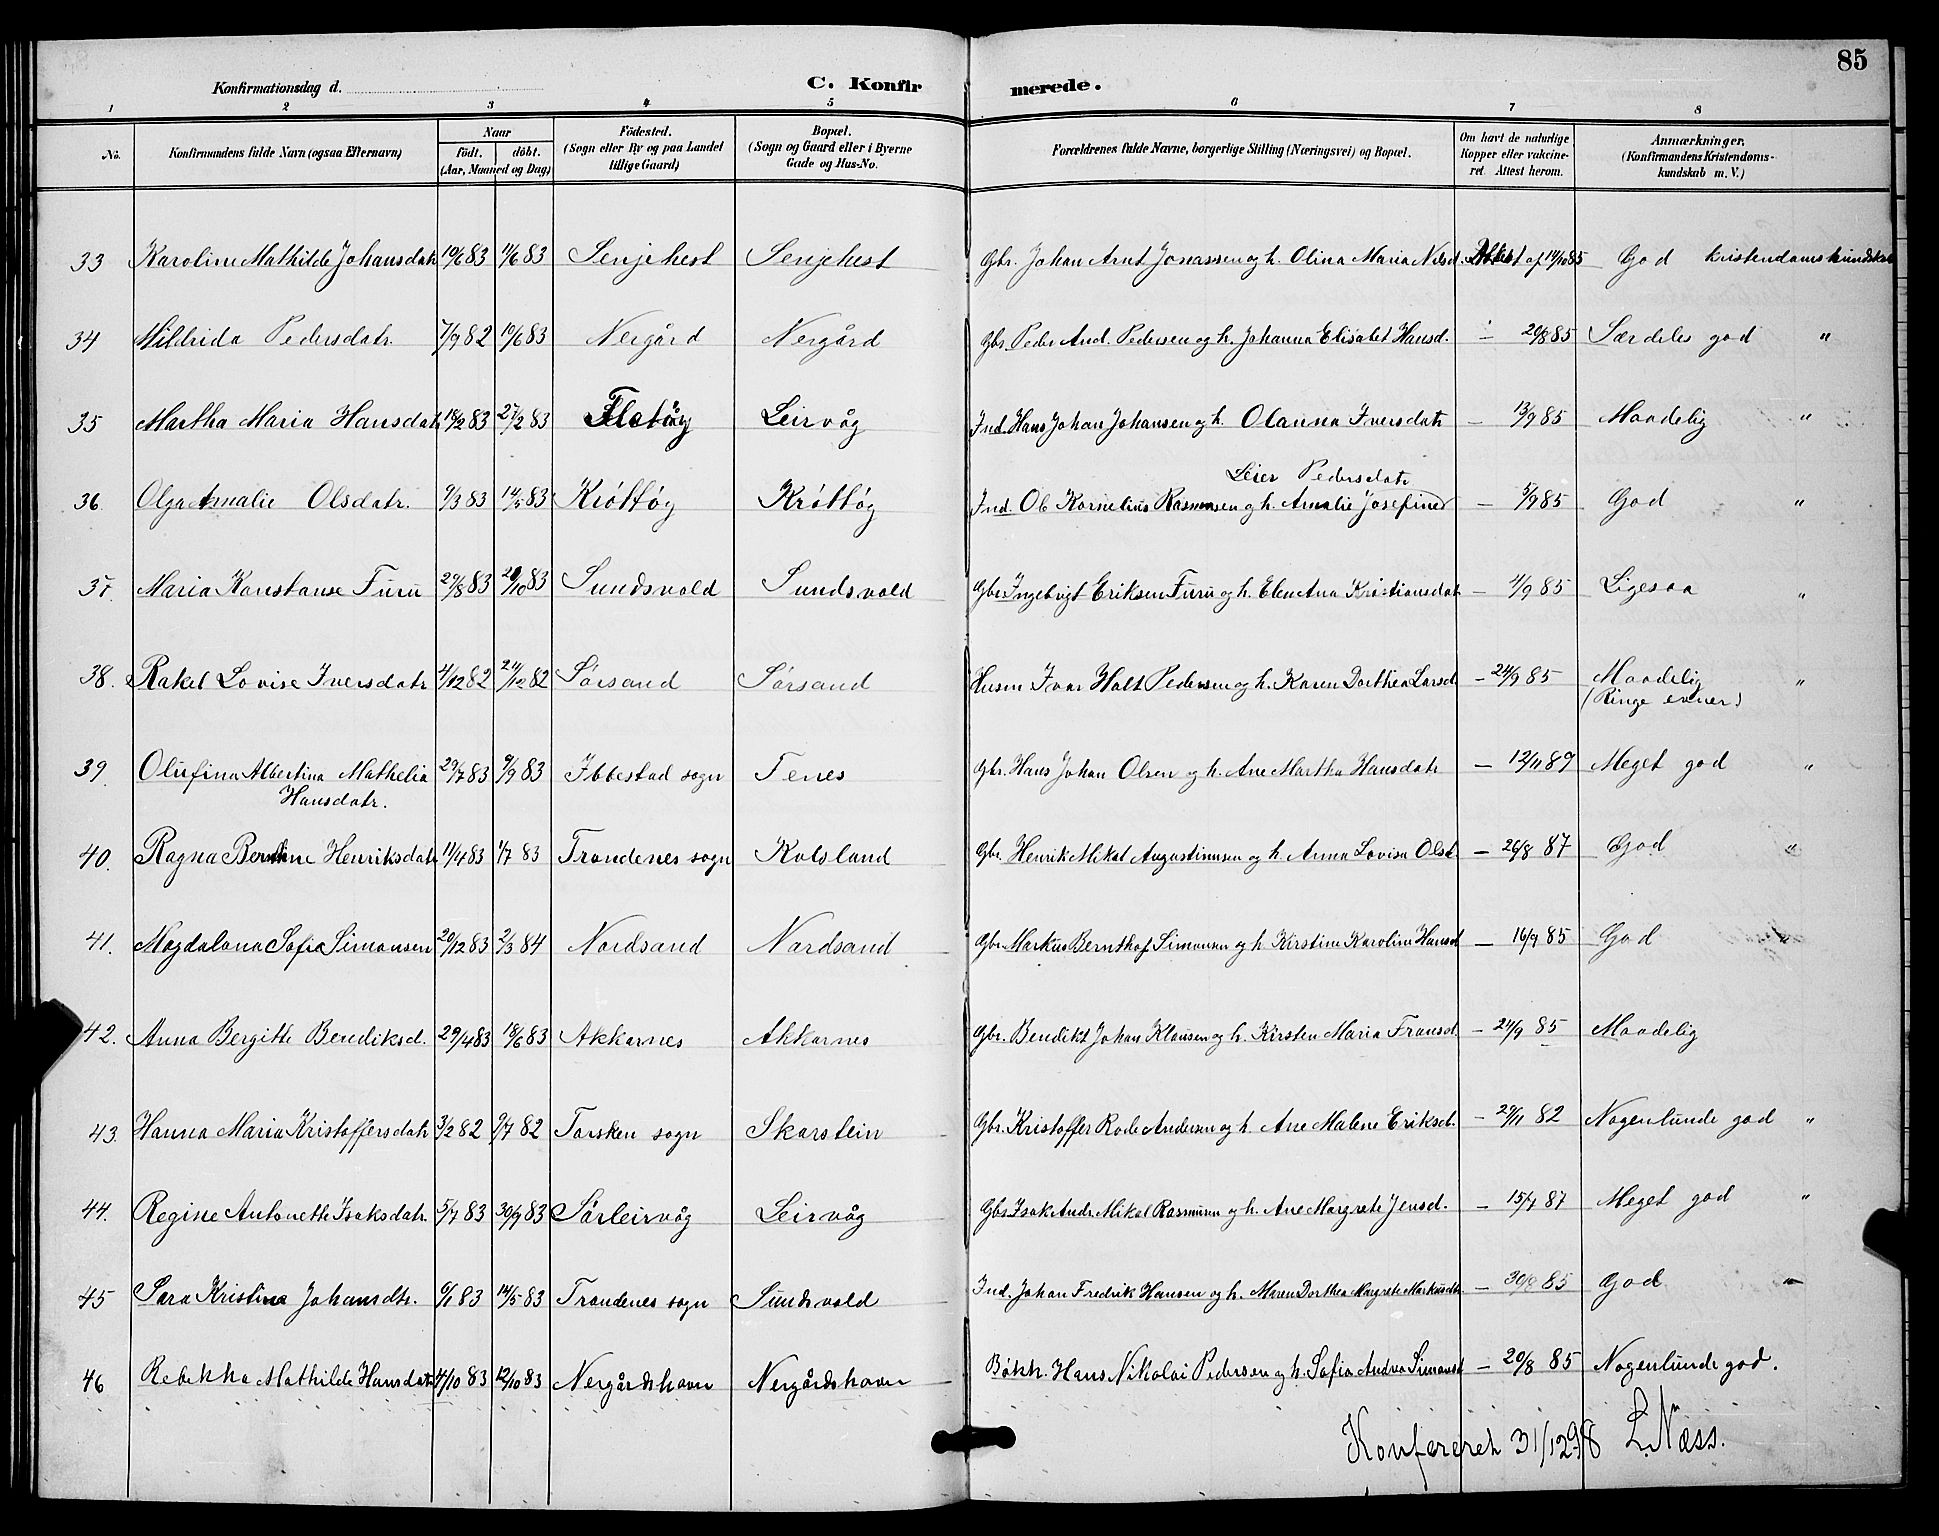 85
Konfirmationsdag d.
C. Konfirmerede.
1 2 3 4 5 6 7 8
No. Konfirmandens fulde Navn (ogsaa Efternavn) Naar födt. döbt. (Aar, Maaned og Dag) Födested. (Sogn eller By og paa Landet tillige Gaard) Bopæl. (Sogn og Gaard eller i Byerne Gade og Hus-No. Forældrenes fulde Navne, borgerlige Stilling (Næringsvei) og Bopæl. Om havt de naturlige Kopper eller vakcineret. Attest herom. Anmærkninger. (Konfirmandens Kristendomskundskab m. V.)
33 Karoline Mathilde Johansdatr 10/6 83 11/6 83 Senjehest Senjehest Gbr. Johan Arnt Jonassen og h. Olina Maria Nilsd. Attest af 14/10 85 God kristendomskundskab
34 Hildrida Pedersdatr. 7/9 82 10/6 83 Nergård Nergård Gbr. Peder And. Pedersen og h. Johanna Elisabet Hansd. — 20/8 85 Særdeles god "
35 Martha Maria Hansdatr 18/2 83 25/2 83 Leirvåg Ind. Hans Johan Johansen og h. Olausa Iversdatr — 13/9 85 Maadelig "
Leier Pedersdatr
36 Olga Amalie Olsdatr. 9/3 83 14/5 83 Krøttøy Krøttøy Ind. Ol Kornelius Rasmussen og h. Amalie Josefine — 5/9 85 God "
37. Maria Konstanse Furu 29/8 83 29/10 83 Sundsvold Sundsvold Gbr. Ingebrigt Eriksen Furu og h. Elen Ana Kristiansdatr — 4/9 85 Ligesaa "
38. Rakel Lovise Iversdatr 4/12 82 24/12 82 Sørsand Sørsand Husm Ivar Holt Pedersen og h. Karen Dorthea Larsd. — 24/9 85 Maadelig "
(Ringe evner)
39. Olufina Albertina Mathelia 29/7 83 9/9 83 Ibbestad sogn Tenes Gbr. Hans Johan Olsen og h. Ane Martha Hansdatr — 12/11 89 Meget god "
Hansdatr.
40. Ragna Berntine Henriksdatr 11/4 83 1/7 83 Trondenes sogn Kolsland Gbr. Henrik Mikal Augustinusen og h. Anna Lovisa Olsd. — 26/8 87 God "
41. Magdalena Sofie Simonsen 20/12 83 2/3 84 Nordsand Nordsand Gbr. Markus Bernthof Simonsen og h. Kirstine Karoline Hansd — 16/9 85 God
42. Anna Bergitte Benediksd. 29/4 83 18/6 83 Akkarnes Akkarnes Gbr. Bendikt Johan Klausen og h. Kirsten Maria Fransd. — 24/9 85 Maadelig
43. Hanna Maria Kristoffersdatr 3/2 82 9/7 82 Torsken sogn Skorstein Gbr. Kristoffer Rode Andersen og h. Ane Malene Eriksd. — 29/11 82 Nogenlunde god "
44. Regine Antonette Isaksdatr. 5/7 83 30/9 83 Sørleirvåg Leirvåg Gbr. Isak Andr. Mikal Rasmusen og h. Ane Margrete Jensd. — 15/7 87 Meget god "
45 Sara Kristine Johansdtr. 6/1 83 14/5 83 Trondenes sogn Sundsvold Ind. Johan Fredrik Hansen og h. Maren Dorthea Margrete Markusdtr. — 30/8 85 God "
46 Rebekka Mathilde Hansdatr 4/10 83 12/10 83 Nergårdshavn Nergårdshavn Bøkk. Hans Nikolai Pedersen og h. Sofia Andrea Simonsd — 20/8 85 Nogenlunde god.
Konfereret 31/12 98 L. Næss.